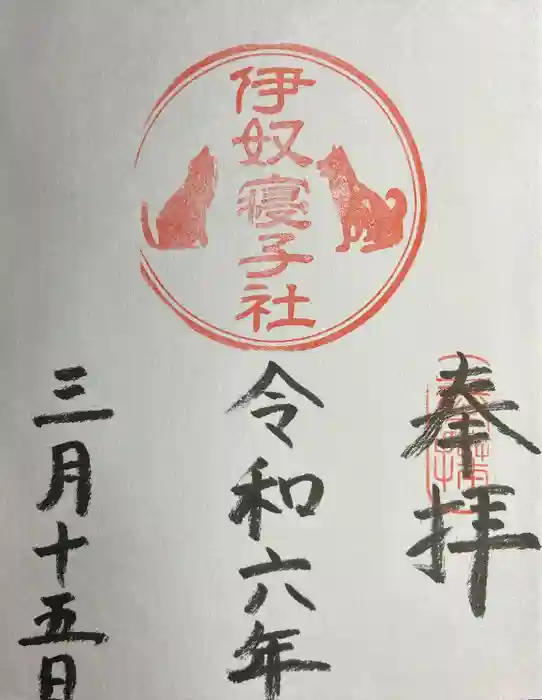 伊奴寝子社
奉拝
令和六年
三月十五日